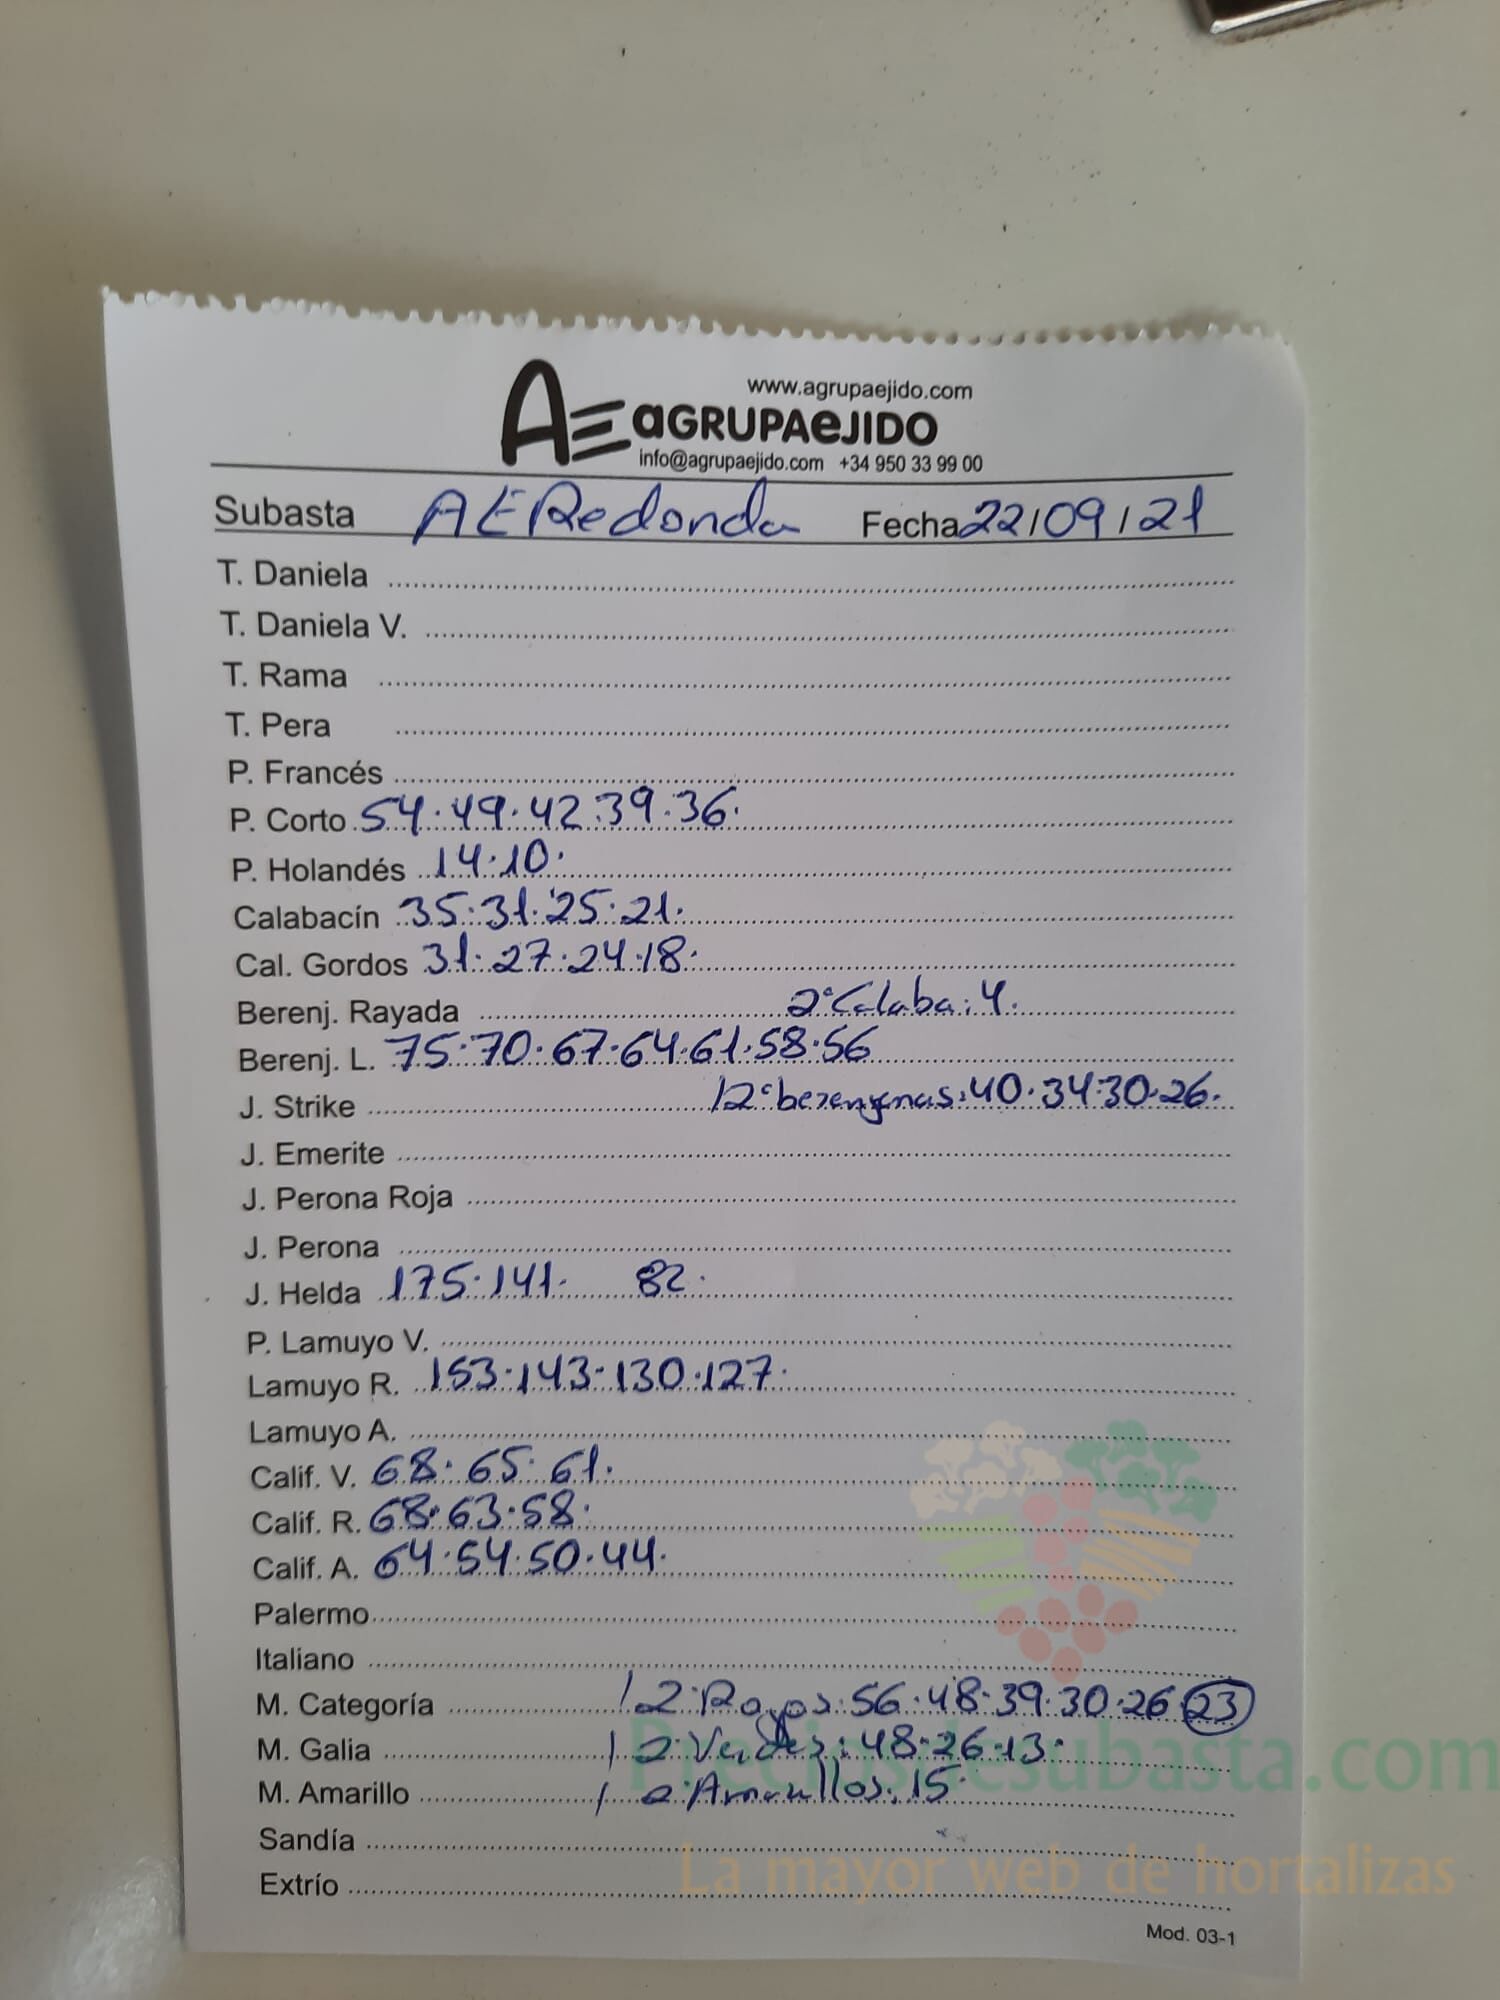 www.agrupaejido.com
AE aGRUPAeJIDO
info@agrupaejido.com +34 950 33 99 00
Subasta AE Redonda Fecha 22/09/21
T. Daniela
T. Daniela V.
T. Rama
T. Pera
P. Francés
P. Corto 54·49·42·39·36·
P. Holandés 14·10·
Calabacín 35·31·25·21·
Cal. Gordos 31·27·24·18·
Berenj. Rayada 2ª Calaba: 4.
Berenj. L. 75·70·67·64·61·58·56
J. Strike /2ª berenjenas: 40·34·30·26.
J. Emerite
J. Perona Roja
J. Perona
J. Helda 175·141· 82·
P. Lamuyo V.
Lamuyo R. 153·143·130·127·
Lamuyo A.
Calif. V. 68·65·61·
Calif. R. 68·63·58·
Calif. A. 64·54·50·44·
Palermo
Italiano
M. Categoría / 2ª Rojos: 56·48·39·30·26·23
M. Galia / 2ª Verdes: 48·26·13·
M. Amarillo / 2ª Amarillos: 15·
Sandía
Extrío
Mod. 03-1
Preciosdesubasta.com
La mayor web de hortalizas